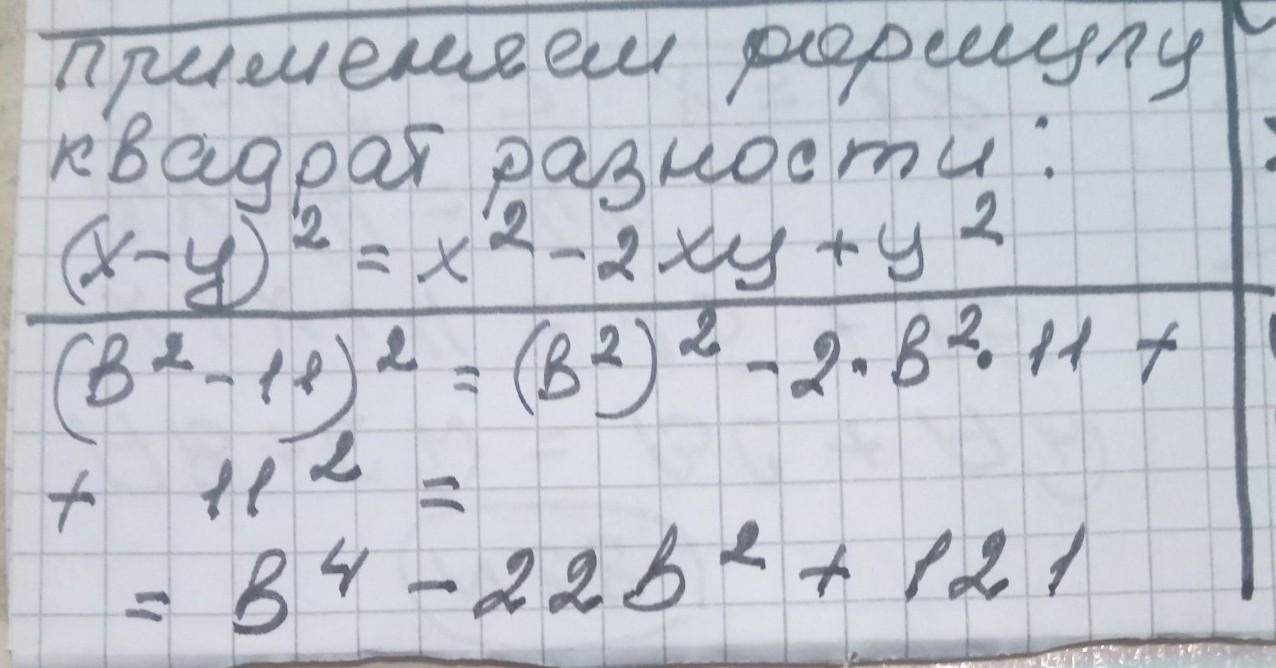 применяем формулу
квадрат разности:
(x-y)² = x² - 2xy + y²
(в² - 11)² = (в²)² - 2·в²·11 +
+ 11² =
= в⁴ - 22в² + 121